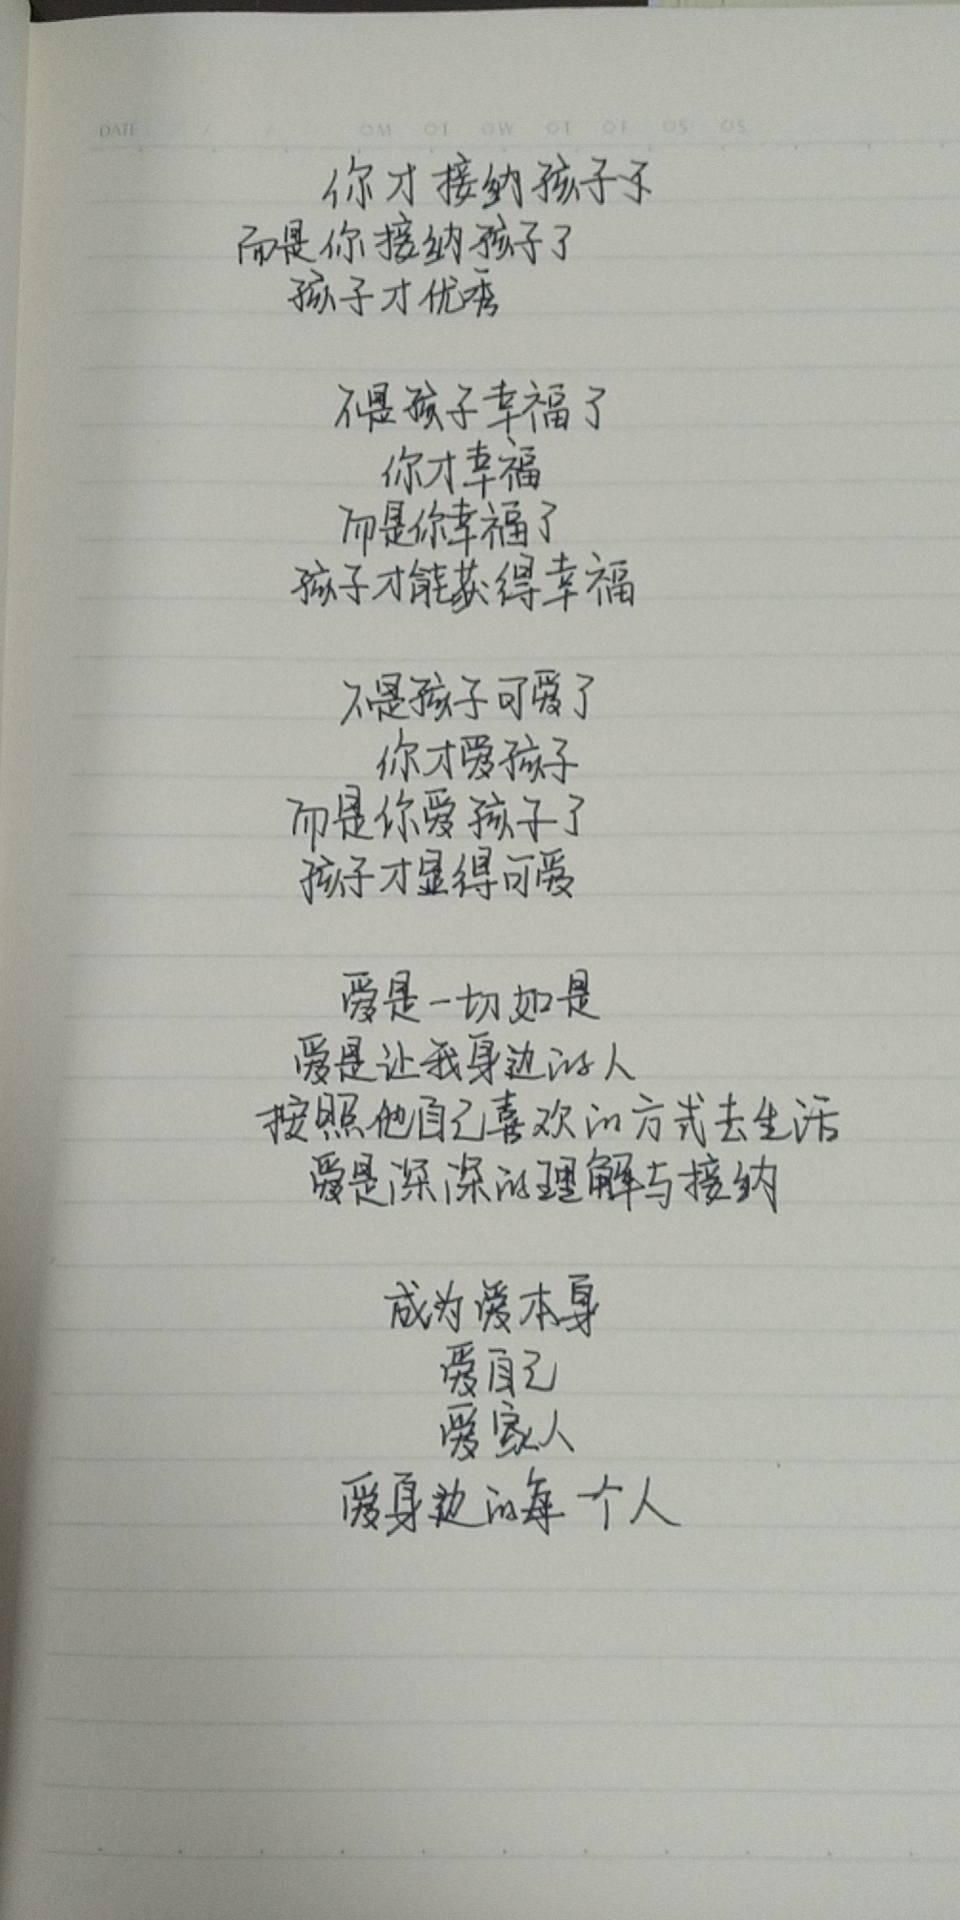 DATE / / OM OT OW OT OF OS OS
你才接纳孩子
而是你接纳孩子了
孩子才优秀
不是孩子幸福了
你才幸福
而是你幸福了
孩子才能获得幸福
不是孩子可爱了
你才爱孩子
而是你爱孩子了
孩子才显得可爱
爱是一切如是
爱是让我身边的人
按照他自己喜欢的方式去生活
爱是深深的理解与接纳
成为爱本身
爱自己
爱家人
爱身边的每一个人